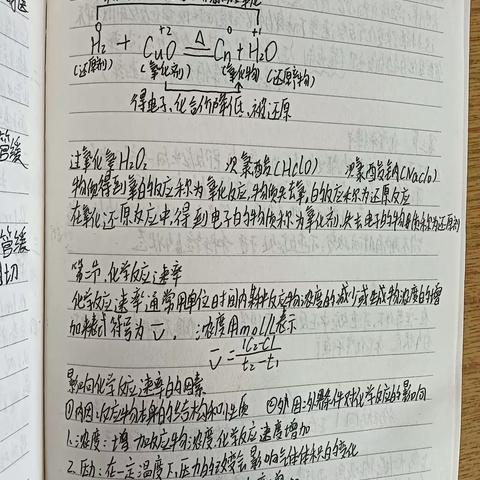 0 +1
H₂ + CuO =△= Cu + H₂O
+2 0
(还原剂) (氧化剂) (氧化物) (还原物)
得电子,化合价降低,被还原
过氧化氢H₂O₂ 次氯酸(HClO) 次氯酸钠(NaClO)
物质得到氧的反应称为氧化反应,物质失去氧的反应称为还原反应
在氧化还原反应中,得到电子的物质称为氧化剂,失去电子的物质称为还原剂
第一节,化学反应速率
化学反应速率通常用单位时间内某种反应物浓度的减小或生成物浓度的增
加来表示 符号为 v̄ , :浓度用mol/L表示
v̄ = |c₂-c₁| / t₂-t₁
影响化学反应速率的因素
①内因:反应物本身的结构和性质 ②外因:外界条件对化学反应的影响
1.浓度:增加反应物浓度,化学反应速度增加
2.压力:在一定温度下,压力的改变会影响气体体积的变化
管缓
管缓
切